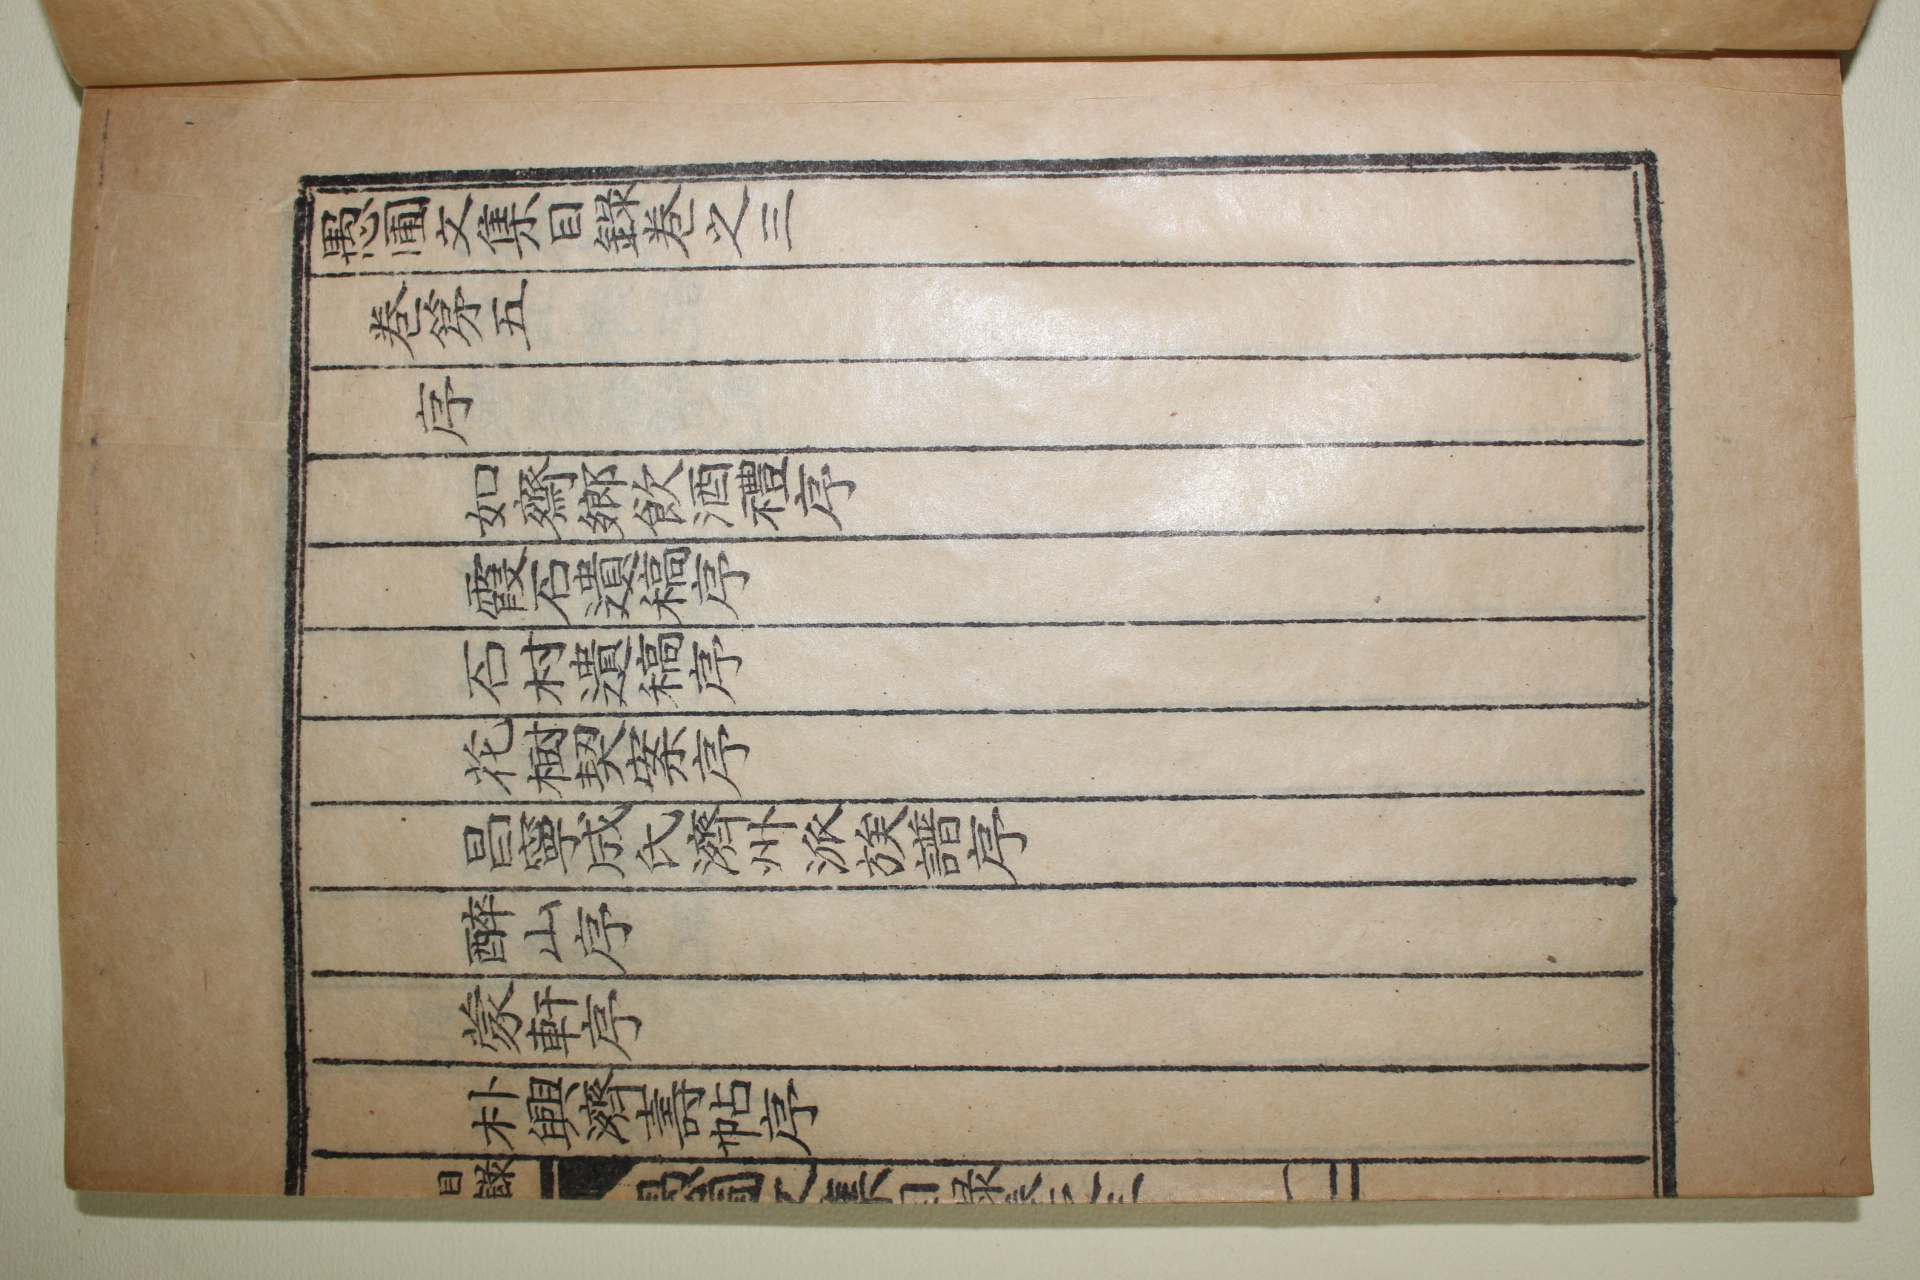 愚圃文集目錄卷之三
卷第五
序
如齋鄕飮酒禮序
霞石遺稿序
石村遺稿序
花樹契案序
昌寧成氏濟州派族譜序
醉山序
蒙軒序
朴興濟壽帖序
目錄